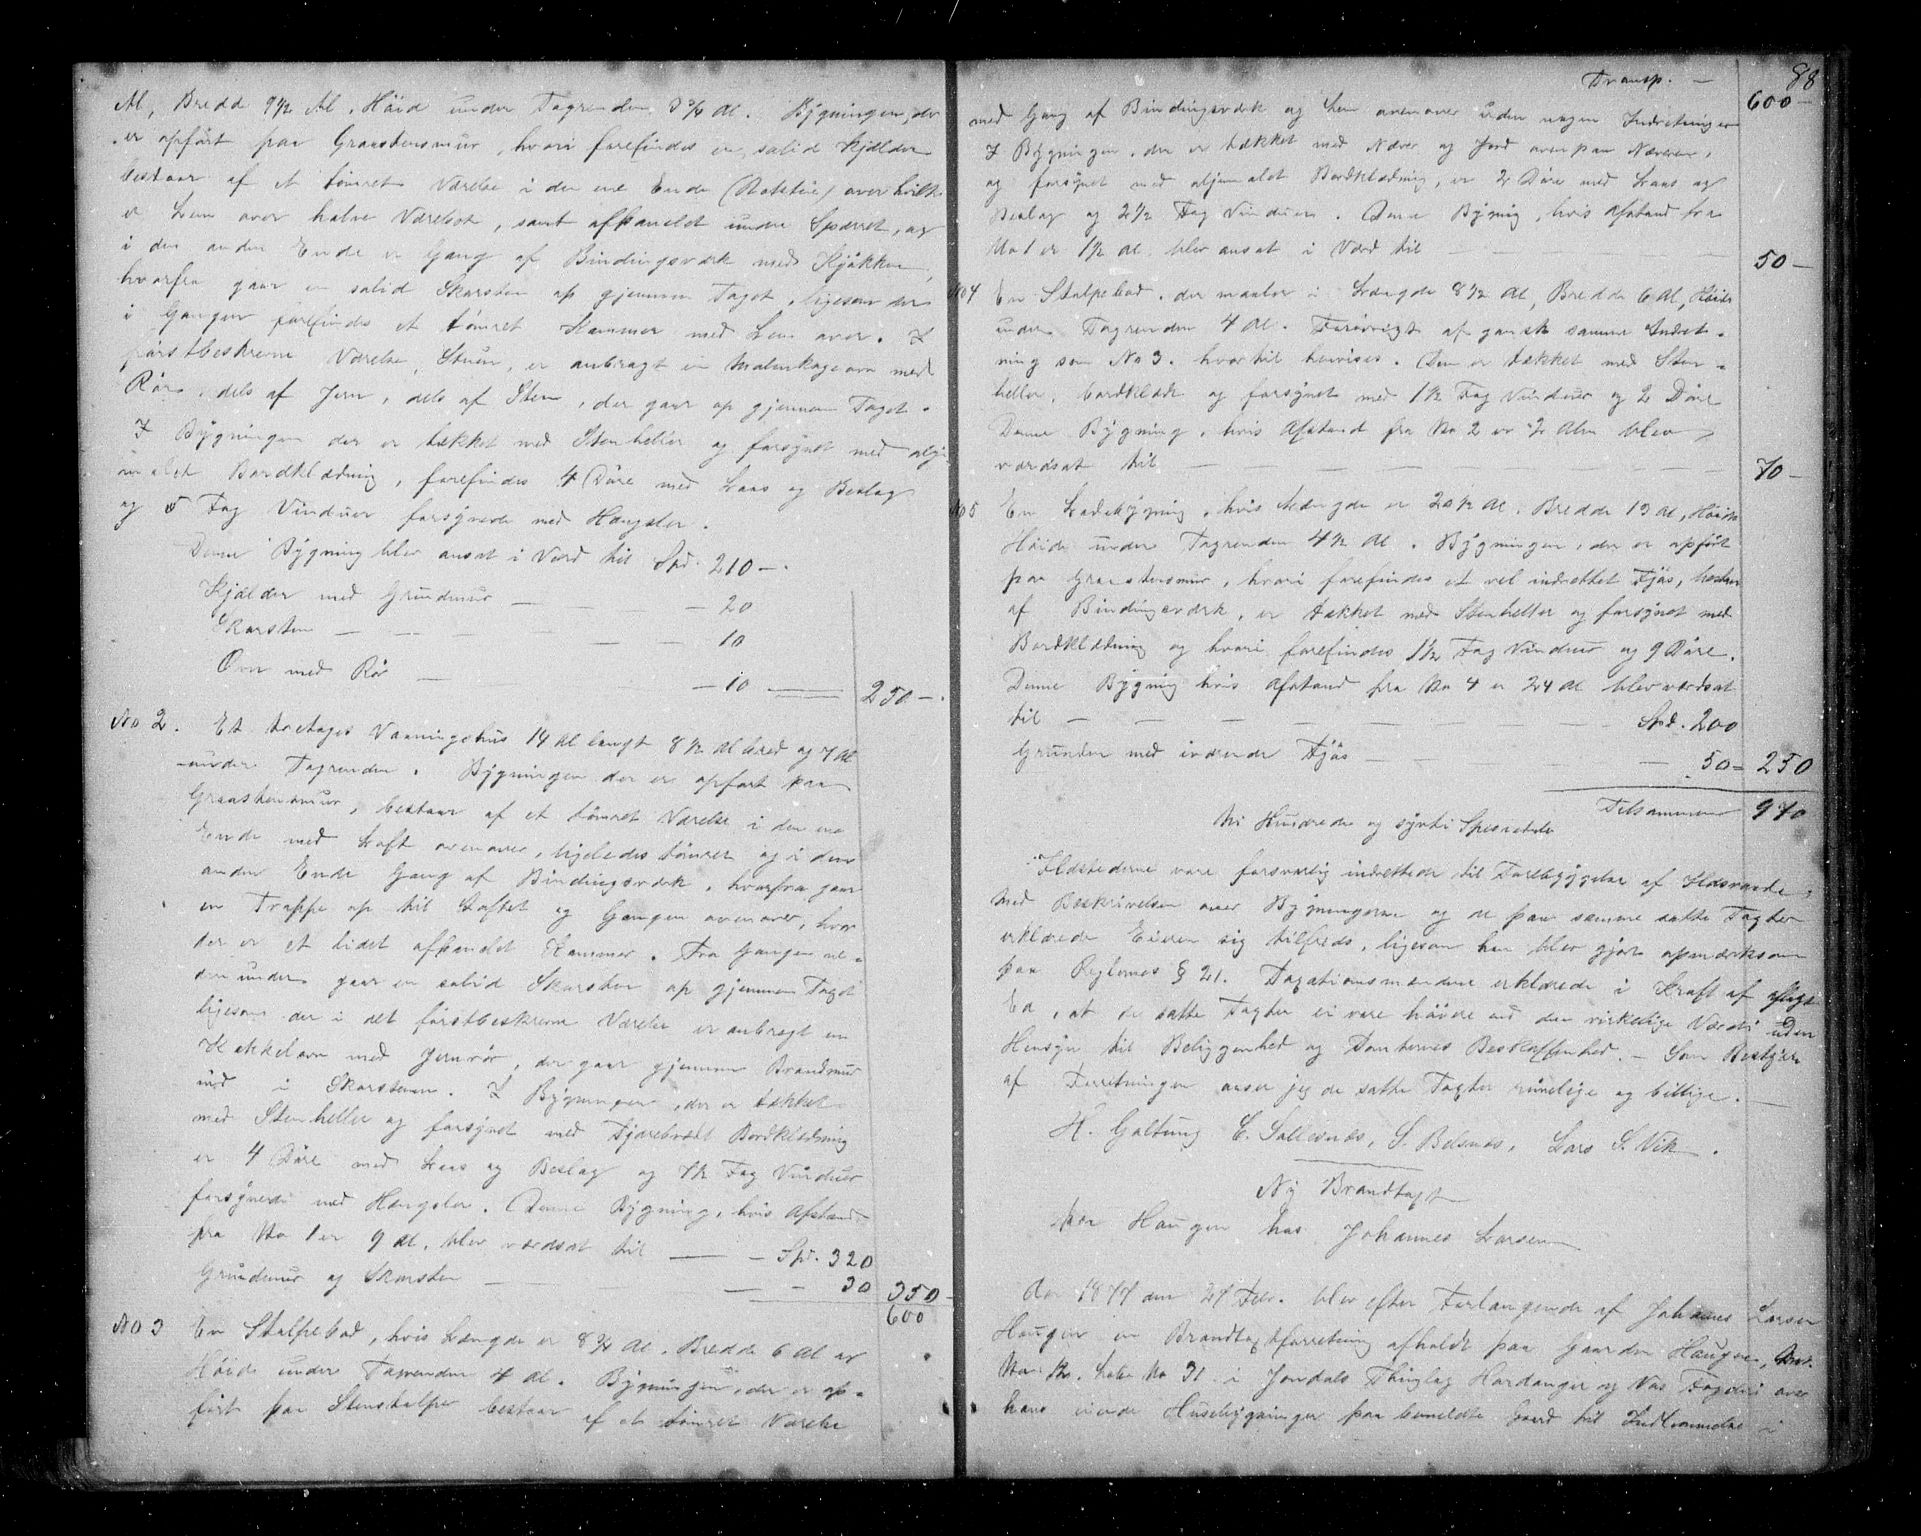 Al, Bredd 9 1/2 Al. Høid under Tagrenden 3 3/4 Al. Bygningen, der
er opført paa Graastensmur, hvori forefindes en solid Kjælder
bestaar af et tømret Værelse i den ene Ende (Røkstue) over hvilke
er Lem over halve Værelset, samt afpanelet under Sperret, og
i den anden Ende er Gang af Bindingsværk med Kjøkken,
hvorfra gaar en solid Skorsten op gjennem Taget, ligesom der
i Gangen forefindes et tømret Kammer med Lem over. I
førstbeskrevne Værelse, Stuen, er anbragt en Malmkageovn med
Rør, dels af Jern, dels af Sten, der gaar op gjennem Taget.
I Bygningen der er tækket med Stenheller og forsynet med olje
malet Bordklædning, forefindes 4 Døre med Laas og Beslag
og 5 Fag Vinduer forsynede med Hængsler.
Denne Bygning blev ansat i Værd til Spd. 210 —
Kjælder med Grundmur — — — 20
Skorsten — — — — — 10
Ovn med Rør — — 10 — 250 —
No 2. Et toetages Vaaningshus 14 Al langt 8 1/2 Al bred og 7 Al
under Tagrenden. Bygningen der er opført paa
Graastensmur, bestaar af et tømret Værelse i den ene
Ende med Loft ovenover, ligeledes tømret og i den
anden Ende Gang af Bindingsværk, hvorfra gaar
en Trappe op til Loftet og Gangen ovenover, hvor
der er et lidet afpanelet Kammer. Fra Gangen ne-
denunder gaar en solid Skorsten op gjennem Taget
ligesom der i det førstbeskrevne Værelse er anbragt en
Kakkelovn med Jernrør, der gaar gjennem Brandmur
ind i Skorstenen. I Bygningen, der er tækket
med Stenheller og forsynet med Tjærebredt Bordklædning
er 4 Døre med Laas og Beslag og Fag Vinduer
forsynede med Hængsler. Denne Bygning, hvis Afstand
fra No 1 er 9 Al. blev værdsat til — — Spd. 320
Grundmur og Skorsten — — — 30 350 —
600
No 3 En Stolpebod, hvis Længde er 8 3/4 Al. Bredde 6 Al og
Høide under Tagrenden 4 Al. Bygningen, der er op-
ført paa Stenstolper bestaar af et tømret Værelse
88
Transp. — 600 —
med Gang af Bindingsværk og Lem ovenover uden nogen Indretninger
I Bygningen, der er tækket med Næver og Jord ovenpaa Næveren,
og forsynet med oljemalet Bordklædning, er 2 Døre med Laas og
Beslag og 2 1/2 Fag Vinduer. Denne Bygning, hvis Afstand fra
No 1 er 1 1/2 Al. blev ansat i Værd til — — — 50 —
No 4 En Stolpebod, der maaler i Længde 8 1/2 Al, Bredde 6 Al, Høide
under Tagrenden 4 Al. Forøvrigt af gansk samme Indret-
ning som No 3. hvortil henvises. Den er tækket med Sten-
heller, bordklædt og forsynet med 1 1/2 Fag Vinduer og 2 Døre
Denne Bygning, hvis Afstand fra No 2 er 2 Alen blev
værdsat til — — — — — — — 70 —
No 5 En Ladebygning, hvis Længde er 20 1/2 Al. Bredde 13 Al, Høide
Høide under Tagrenden 4 1/2 Al. Bygningen, der er opført
paa Graastensmur, hvori forefindes et vel indrettet Fjøs, bestaar
af Bindingsværk, er tækket med Stenheller og forsynet med
Bordklædning og hvori forefindes 1 1/2 Fag Vinduer og 9 Døre.
Denne Bygning hvis Afstand fra No 4 er 24 Al blev værdsat
til — — — — — — Spd. 200
Grunden med iværende Fjøs — — — — 50 = 250
Tilsammen 970
Ni Hundrede og sytti Speciedaler
Ildstederne vare forsvarlig indrettede til Forebyggelse af Ildsvaade.
Med Beskrivelsen over Bygningerne og de paa samme satte Taxter
erklærede Eieren sig tilfreds, ligesom han blev gjort opmærksom
paa Reglernes § 21. Taxationsmændene erklærede i Kraft af aflagt
Ed, at de satte Taxter ei vare høiere end den virkelige Værdi uden
Hensyn til Beliggenhed og Tomternes Beskaffenhed. — Som Bestyrer
af Forretningen anser jeg de satte Taxter rimelige og billige. —
H. Galtung E. Sollesnæs, S. Belsnæs, Lars S. Vik.
Ny Brandtaxt
paa Haugen hos Johannes Larsen
Aar 1877 den 27 Febr. blev efter Forlangende af Johannes Larsen
Haugen en Brandtaxtforretning afholdt paa Gaarden Haugen, Mat.
No. Løbe No 31 i Jondals Thinglag Hardanger og Vos Fogderi over
hans eiende Husebygninger paa bemeldte Gaard til Indlemmelse i